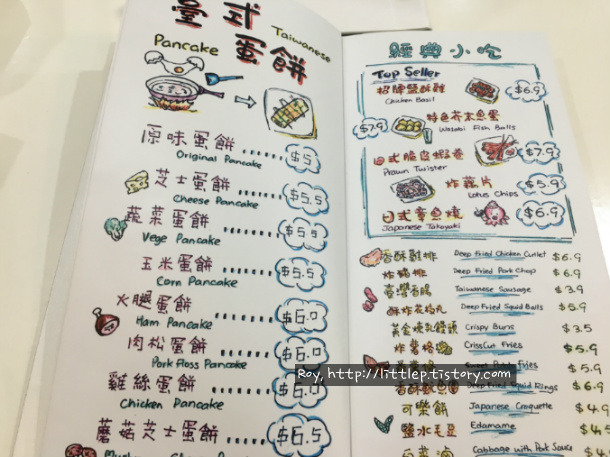 臺式
Taiwanese
Pancake
蛋餅
原味蛋餅 $5
Original Pancake
芝士蛋餅 $5.5
Cheese Pancake
蔬菜蛋餅 $5.5
Vege Pancake
玉米蛋餅 $5.5
Corn Pancake
火腿蛋餅 $6.0
Ham Pancake
肉松蛋餅 $6.0
Pork Floss Pancake
雞絲蛋餅 $6.0
Chicken Pancake
蘑菇芝士蛋餅 $6.5
經典小吃
Top Seller
招牌鹽酥雞 $6.9
Chicken Basil
特色芥末魚蛋 $7.9
Wasabi Fish Balls
日式脆皮蝦卷 $7.9
Prawn Twister
炸藕片 $5.9
Lotus Chips
日式章魚燒 $6.9
Japanese Takoyaki
香酥雞排 Deep Fried Chicken Cutlet $6.9
炸豬排 Deep Fried Pork Chop $6.9
臺灣香腸 Taiwanese Sausage $3.9
酥炸花枝丸 Deep Fried Squid Balls $5.9
黃金燒乳饅頭 Crispy Buns $3.5
炸薯格 CrissCut Fries $5.9
Fries $5.9
香酥魷魚圈 Deep Fried Squid Rings $6.9
可樂餅 Japanese Croquette $4.9
鹽水毛豆 Edamame
Cabbage with Pork Sauce
Roy, http://littlep.tistory.com